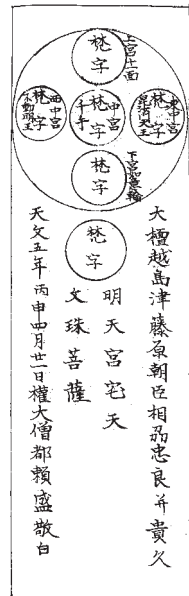 上宮十一面
梵字
東中宮
昆沙門天王
梵字
中宮
千手
梵字
西中宮
不動明王
梵字
下宮如意輪
梵字
梵字
大檀越島津藤原朝臣相州忠良并貴久
明天宮宅天
文珠菩薩
天文五年丙申四月廿一日權大僧都頼盛敬白